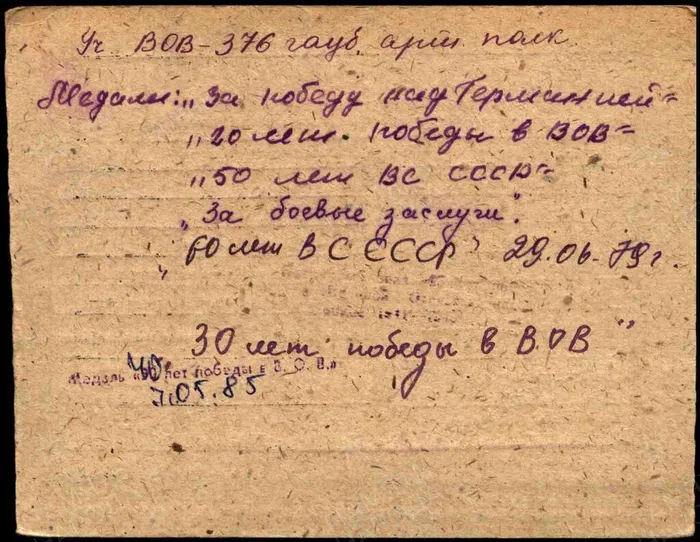 Уч ВОВ-376 гауб. арт. полк.
Медали: „За победу над Германией"
„20 лет победы в ВОВ"
„50 лет ВС СССР"
„За боевые заслуги".
„60 лет ВС СССР" 29.06.79 г.
30 лет победы в ВОВ"
40
Медаль «30 лет победы в В. О. В.»
7.05.85